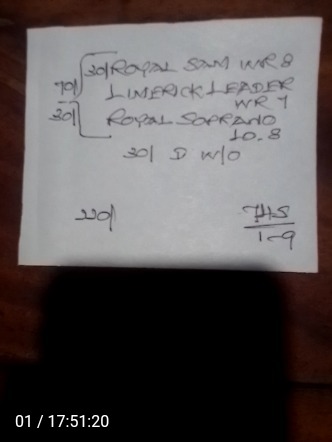 20/ ROYAL SAM WR 8
70/ LIMERICK LEADER
WR 7
30/ ROYAL SOPRANO
10.8
30/ D W/O
220/
1-9
01 / 17:51:20